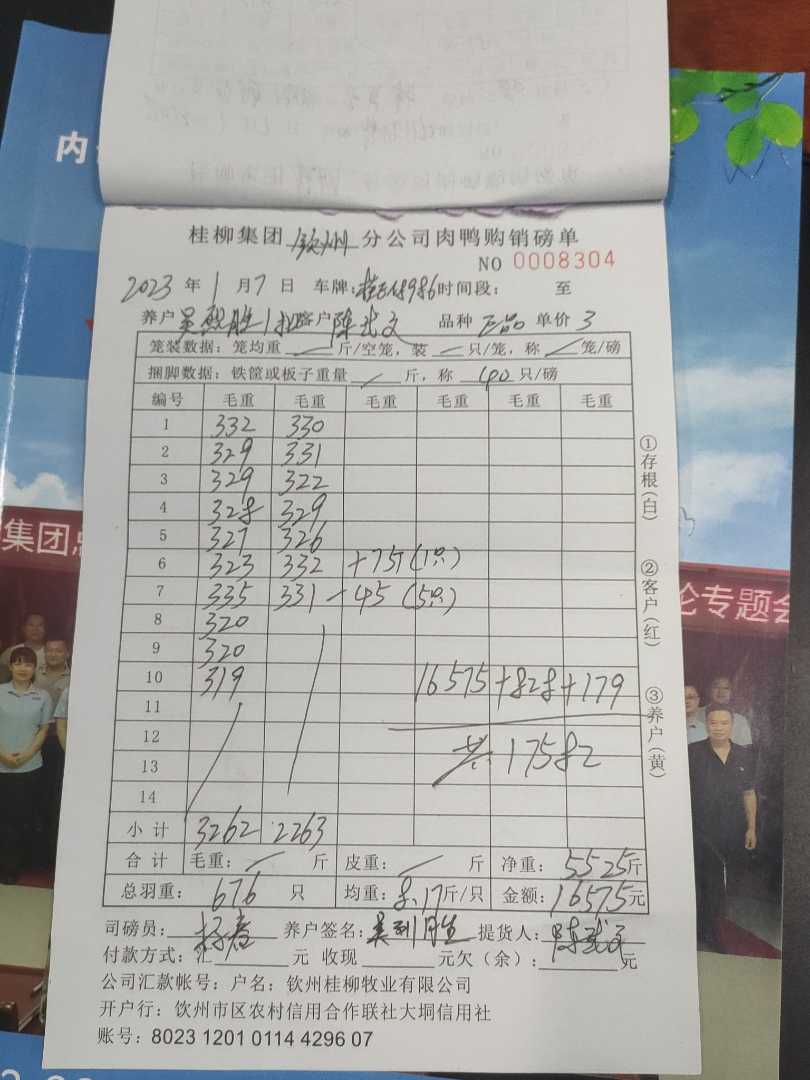 内
桂柳集团 钦州 分公司肉鸭购销磅单
NO 0008304
2023 年 1 月 7 日 车牌: 时间段: 至
养户 客户 陈武文 品种 正品 单价 3
笼装数据: 笼均重 / 斤/空笼, 装 / 只/笼, 称 / 笼/磅
捆脚数据: 铁筐或板子重量 / 斤, 称 40 只/磅
编号 毛重 毛重 毛重 毛重 毛重 毛重
1 332 330
2 329 331
3 329 322
4 328 329
5 327 326
6 323 332 +7斤(1只)
7 335 331 -45 (5只)
8 320
9 320
10 319 16575 +828 +179
11
12 共 17582
13
14
小计 3262 2263
合计 毛重: / 斤 皮重: / 斤 净重: 5525斤
总羽重: 676 只 均重: 8.17斤/只 金额: 16575元
司磅员: 养户签名: 提货人: 陈武文
付款方式: 汇 元 收现 元欠(余): 元
公司汇款帐号: 户名: 钦州桂柳牧业有限公司
开户行: 钦州市区农村信用合作联社大垌信用社
账号: 8023 1201 0114 4296 07
①存根(白)
②客户(红)
③养户(黄)
集团
论专题会